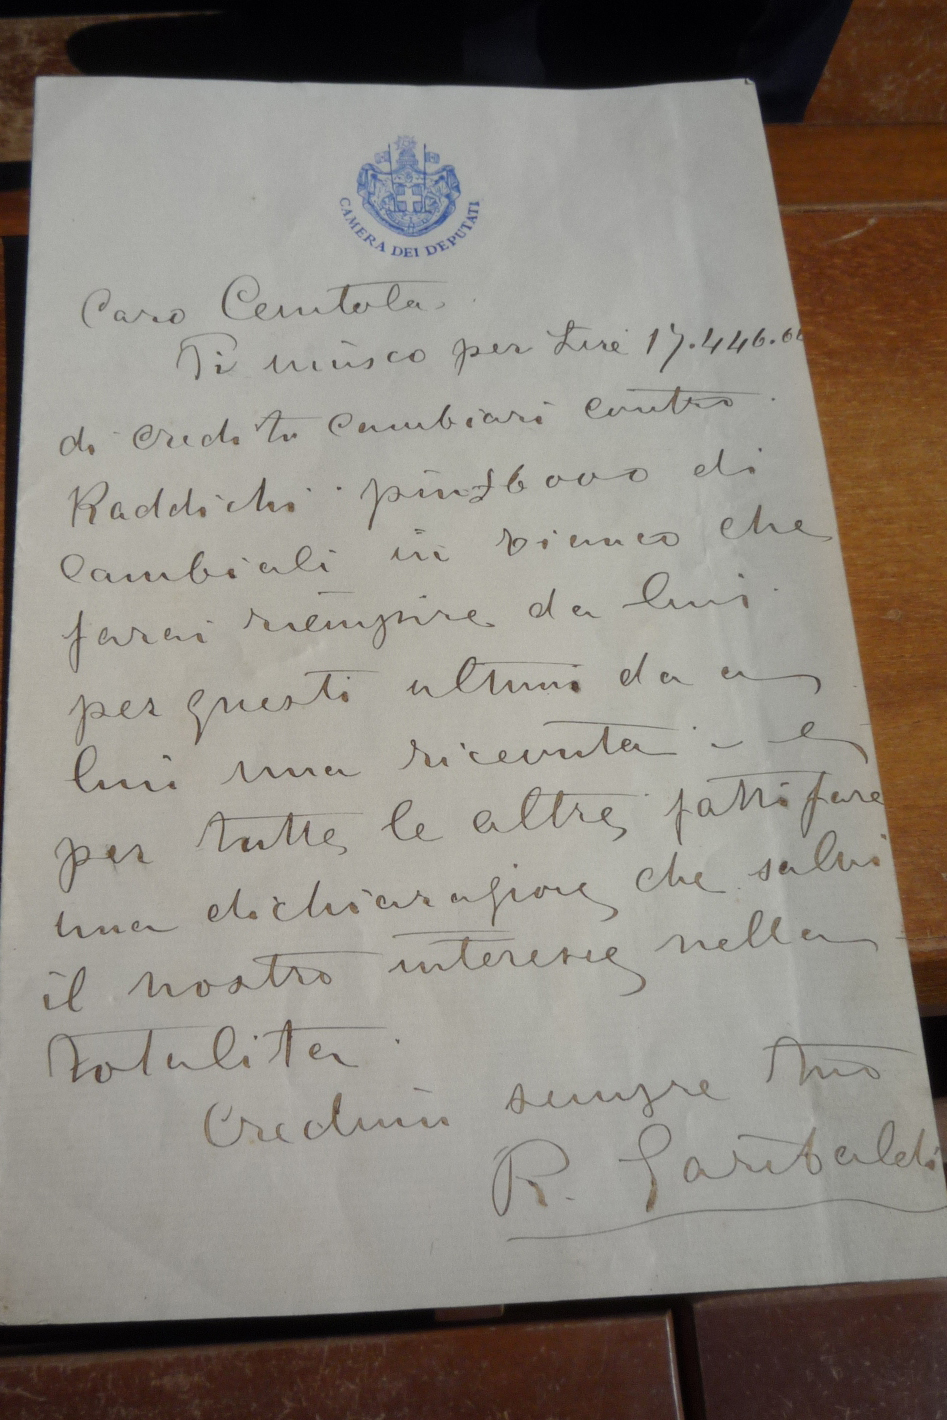 CAMERA DEI DEPUTATI
Caro Centola
Ti unisco per Lire 17.446.60
di crediti cambiari contro
Raddichi più £ 6000 di
cambiali in bianco che
farai riempire da lui
per questi ultimi da a
lui una ricevuta e
per tutte le altre fatti fare
una dichiarazione che salvi
il nostro interesse nella
totalità.
Credimi sempre tuo
R. Garibaldi